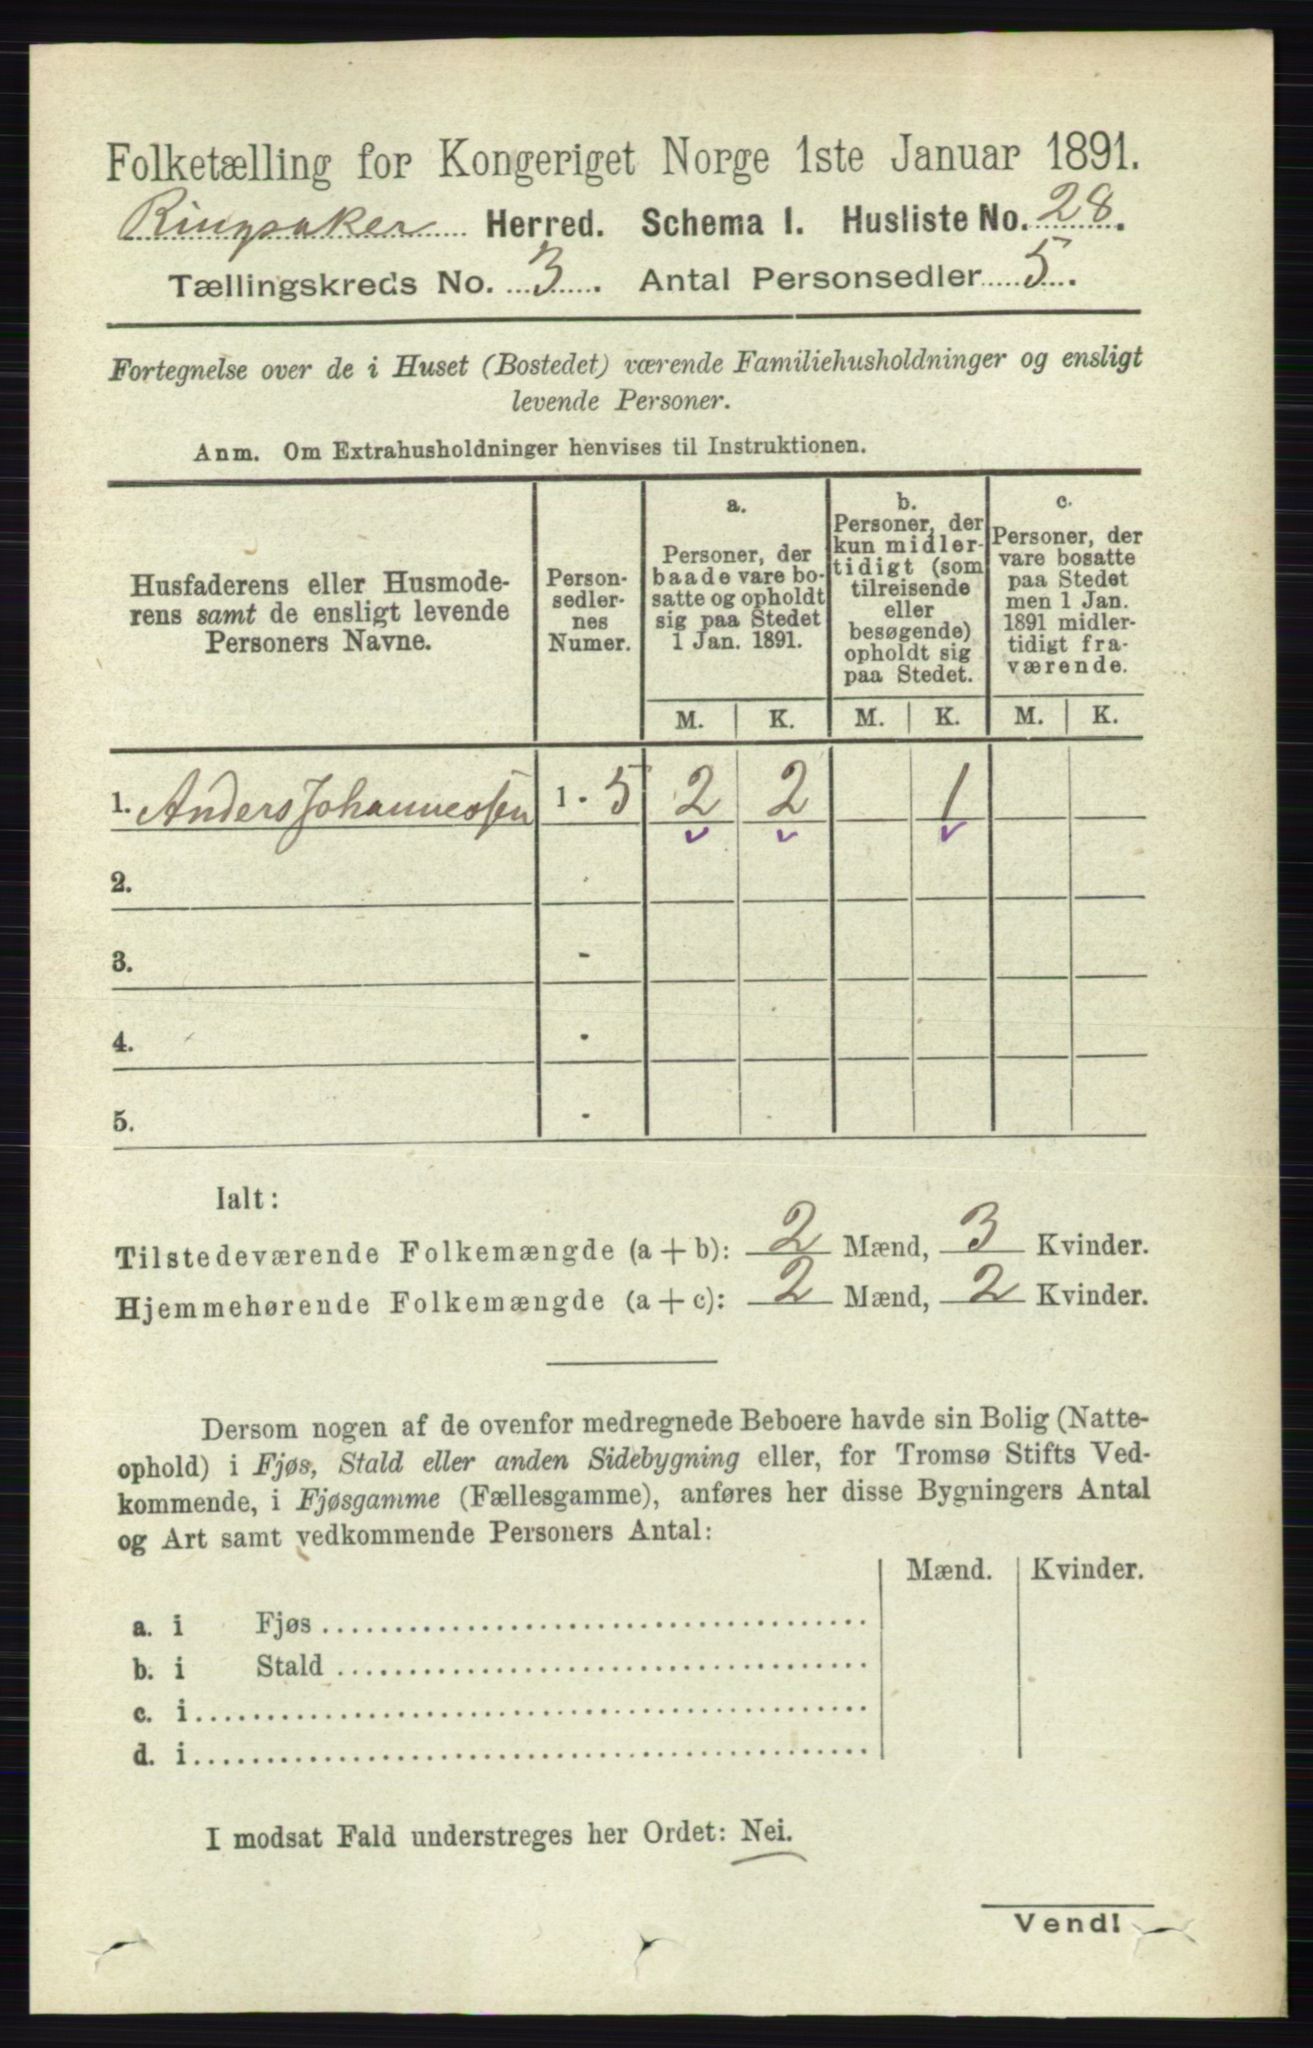 Folketælling for Kongeriget Norge 1ste Januar 1891.
Ringsaker Herred. Schema I. Husliste No. 28.
Tællingskreds No. 3. Antal Personsedler 5.
Fortegnelse over de i Huset (Bostedet) værende Familiehusholdninger og ensligt
levende Personer.
Anm. Om Extrahusholdninger henvises til Instruktionen.
Husfaderens eller Husmode-
rens samt de ensligt levende
Personers Navne.
Person-
sedler-
nes
Numer.
a.
Personer, der
baade vare bo-
satte og opholdt
sig paa Stedet
1 Jan. 1891.
b.
Personer, der
kun midler-
tidigt (som
tilreisende
eller
besøgende)
opholdt sig
paa Stedet.
c.
Personer, der
vare bosatte
paa Stedet
men 1 Jan.
1891 midler-
tidigt fra-
værende.
M. K. M. K. M. K.
1. Anders Johannessen 1 - 5 2 2 1
2.
3. -
4. -
5. -
Ialt:
Tilstedeværende Folkemængde (a + b): 2 Mænd, 3 Kvinder.
Hjemmehørende Folkemængde (a + c): 2 Mænd, 2 Kvinder.
Dersom nogen af de ovenfor medregnede Beboere havde sin Bolig (Natte-
ophold) i Fjøs, Stald eller anden Sidebygning eller, for Tromsø Stifts Ved-
kommende, i Fjøsgamme (Fællesgamme), anføres her disse Bygningers Antal
og Art samt vedkommende Personers Antal:
Mænd. Kvinder.
a. i Fjøs
b. i Stald
c. i
d. i
I modsat Fald understreges her Ordet: Nei.
Vend!